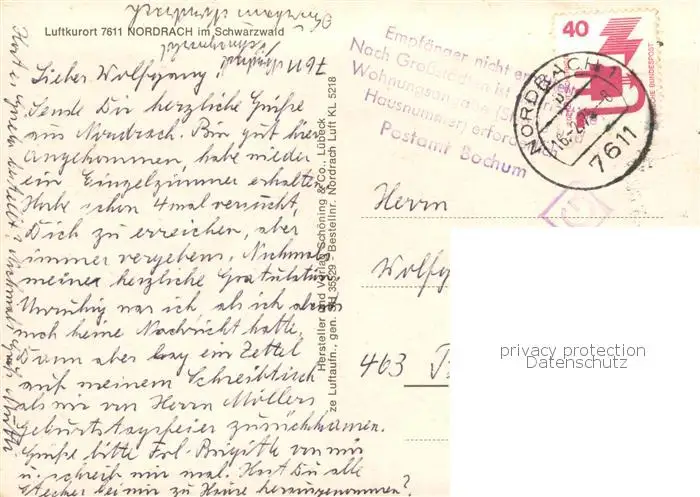 Luftkurort 7611 NORDRACH im Schwarzwald
7611
Lieber Wolfgang!
Sende Dir herzliche Grüße
aus Nordrach. Bin gut hier
angekommen, habe wieder
ein Einzelzimmer erhalten.
Habe schon 4mal versucht,
Dich zu erreichen, aber
immer vergebens. Nochmals
meine herzliche Gratulation.
Unruhig war ich, als ich
noch keine Nachricht hatte.
Dann aber lag ein Zettel
auf meinem Schreibtisch
als wir von Herrn Möllers
Geburtstagsfeier zurückkamen.
Grüße bitte Frl. Brigitte von mir
u. schreib mir mal. Hast Du alle
Stecker bei mir zu Hause herausgenommen?
Hersteller und Verlag Schöning & Co., Lübeck
ze Luftaufn., gen. SH 35529 - Bestellnr. Nordrach Luft KL 5218
Empfänger nicht
Nach Großstädten ist
Wohnungsangabe
Hausnummer) erforderlich
Postamt Bochum
40
DEUTSCHE BUNDESPOST
NORDRACH 1
7611
Herrn
463
privacy protection
Datenschutz